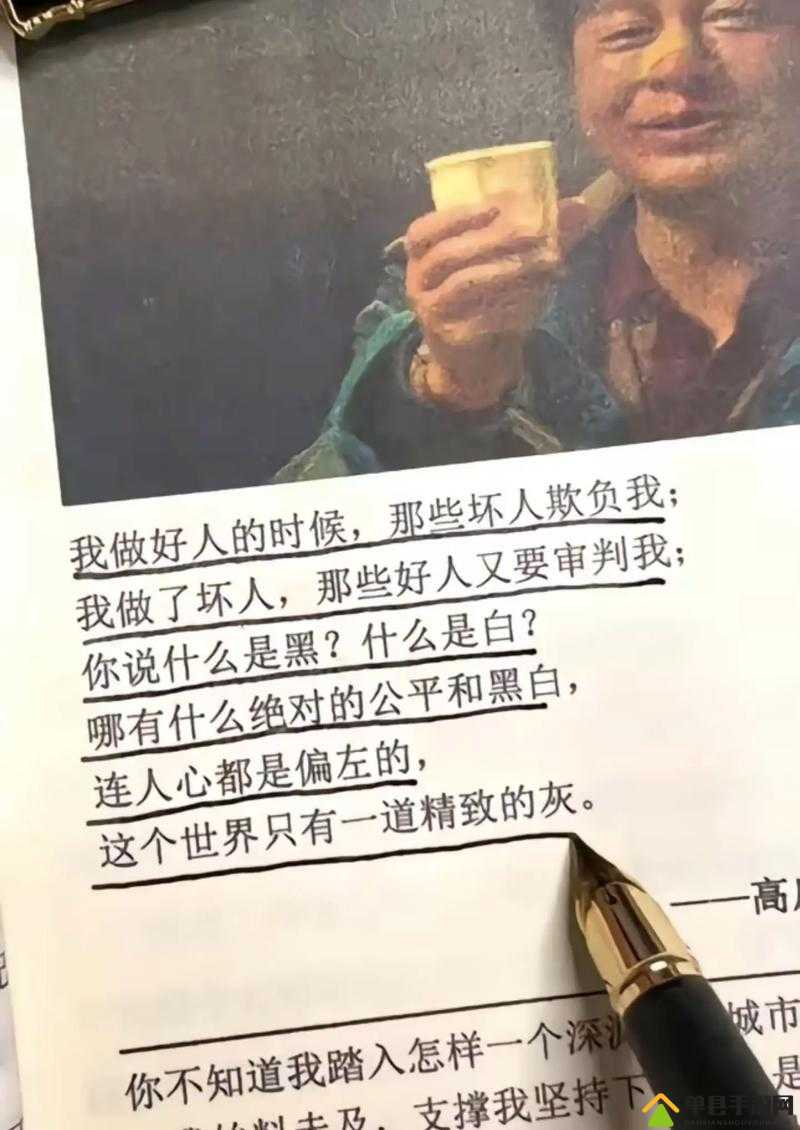 我做好人的时候，那些坏人欺负我；
我做了坏人，那些好人又要审判我；
你说什么是黑？什么是白？
哪有什么绝对的公平和黑白，
连人心都是偏左的，
这个世界只有一道精致的灰。
——高
你不知道我踏入怎样一个深 城市
支撑我坚持下 是
单县手游网